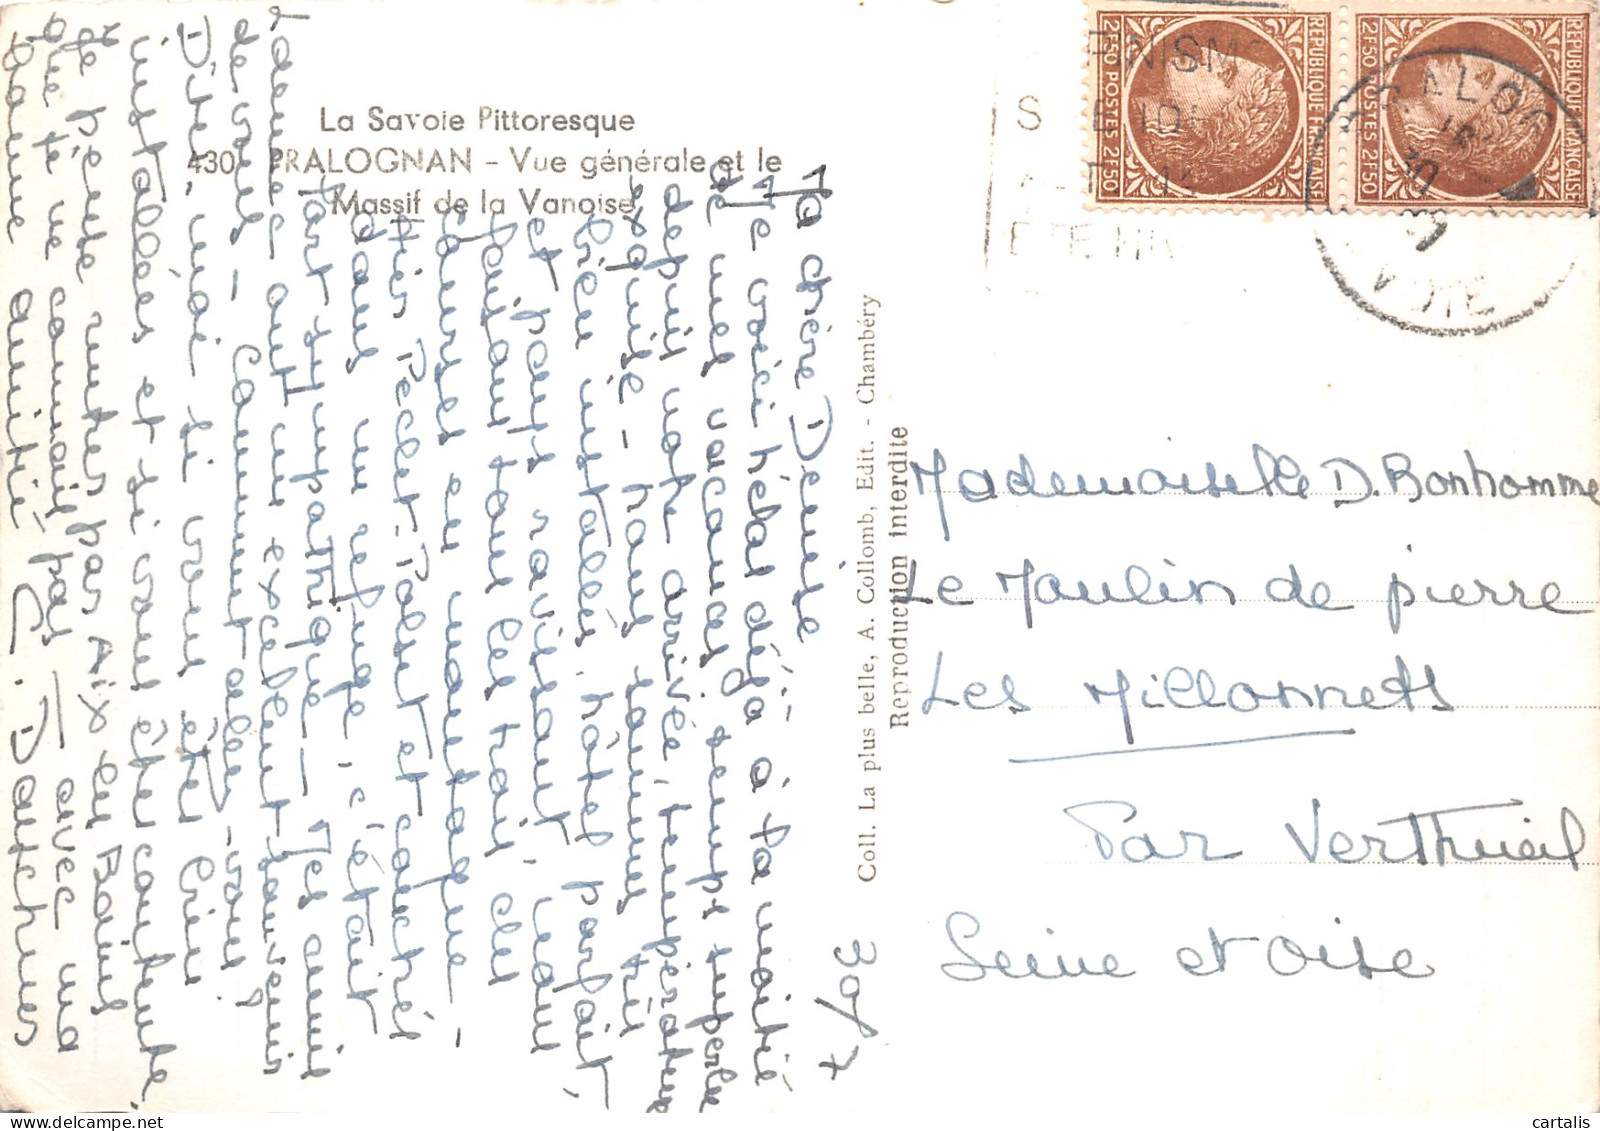 La Savoie Pittoresque
430 PRALOGNAN - Vue générale et le
Massif de la Vanoise
Ma chère Denise
Me voici hélas déjà à la moitié
de mes vacances, temps superbe
depuis notre arrivée, température
exquise - nous sommes très
bien installés, hôtel parfait,
et pays ravissant, nous
faisant tous les trois, des
courses en montagne -
Hier Péclet-Polset et couchés
dans un refuge, c'était
fort sympathique - Mes amis
James ont un excellent souvenir
de vous - Comment allez-vous?
Dites-moi si vous êtes bien
installées et si vous êtes contente
Je pense rentrer par Aix les Bains
que je ne connais pas - avec ma
bonne amitié
30/7
Coll. La plus belle, A. Collomb, Edit. - Chambéry
Reproduction interdite
REPUBLIQUE FRANÇAISE
2F50 POSTES 2F50
REPUBLIQUE FRANÇAISE
2F50 POSTES 2F50
Mademoiselle D. Bonhomme
Le Moulin de pierre
Les Millonnets
Par Vertheuil
Seine et Oise
cartalis